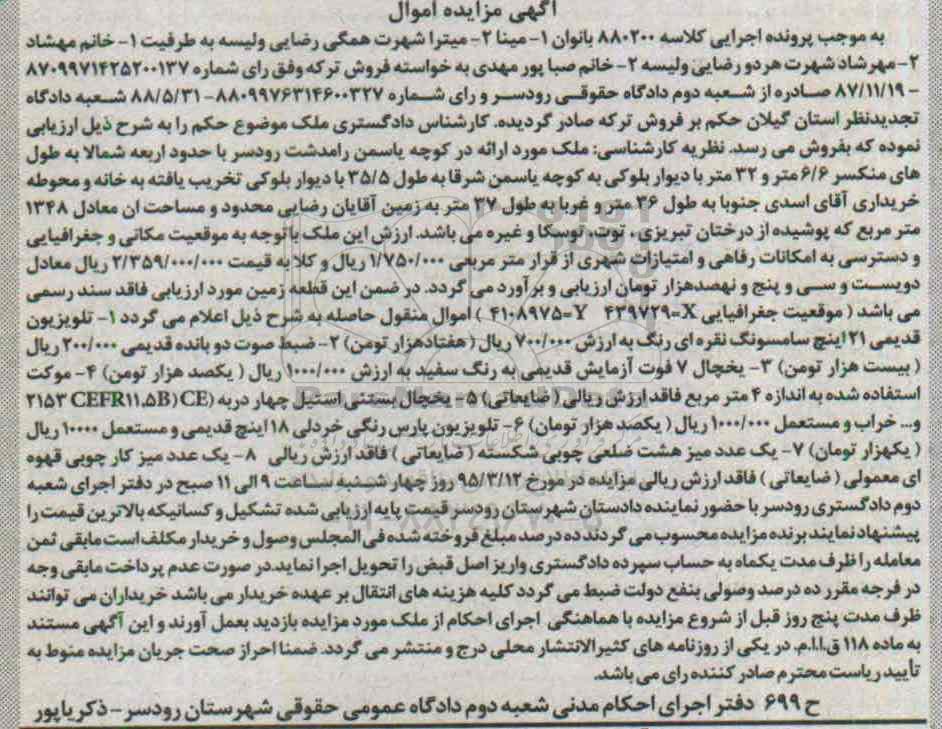 آگهی مزایده اموال
به موجب پرونده اجرایی کلاسه ۸۸۰۲۰۰ بانوان ۱- مینا ۲- میترا شهرت همگی رضایی ولیسه به طرفیت ۱- خانم مهشاد
۲- مهرشاد شهرت هر دو رضایی ولیسه ۲- خانم صبا پور مهدی به خواسته فروش ترکه وفق رای شماره ۸۷۰۹۹۷۱۴۲۵۲۰۰۱۳۷
- ۸۷/۱۱/۱۹ صادره از شعبه دوم دادگاه حقوقی رودسر و رای شماره ۸۸۰۹۹۷۶۳۱۴۶۰۰۳۲۷- ۸۸/۵/۳۱ شعبه دادگاه
تجدیدنظر استان گیلان حکم بر فروش ترکه صادر گردیده. کارشناس دادگستری ملک موضوع حکم را به شرح ذیل ارزیابی
نموده که بفروش می رسد. نظریه کارشناسی: ملک مورد ارائه در کوچه یاسمن رامدشت رودسر با حدود اربعه شمالا به طول
های منکسر ۶/۶ متر و ۳۲ متر با دیوار بلوکی به کوچه یاسمن شرقا به طول ۳۵/۵ با دیوار بلوکی تخریب یافته به خانه و محوطه
خریداری آقای اسدی جنوبا به طول ۳۶ متر و غربا به طول ۳۷ متر به زمین آقایان رضایی محدود و مساحت ان معادل ۱۳۴۸
متر مربع که پوشیده از درختان تبریزی، توت، توسکا و غیره می باشد. ارزش این ملک با توجه به موقعیت مکانی و جغرافیایی
و دسترسی به امکانات رفاهی و امتیازات شهری از قرار متر مربعی ۱/۷۵۰/۰۰۰ ریال و کلا به قیمت ۲/۳۵۹/۰۰۰/۰۰۰ ریال معادل
دویست و سی و پنج و نهصدهزار تومان ارزیابی و برآورد می گردد. در ضمن این قطعه زمین مورد ارزیابی فاقد سند رسمی
می باشد ( موقعیت جغرافیایی X=۴۳۹۷۲۹ Y=۴۱۰۸۹۷۵ ) اموال منقول حاصله به شرح ذیل اعلام می گردد ۱- تلویزیون
قدیمی ۲۱ اینچ سامسونگ نقره ای رنگ به ارزش ۷۰۰/۰۰۰ ریال ( هفتادهزار تومن) ۲- ضبط صوت دو بانده قدیمی ۲۰۰/۰۰۰ ریال
( بیست هزار تومن) ۳- یخچال ۷ فوت آزمایش قدیمی به رنگ سفید به ارزش ۱۰۰۰/۰۰۰ ریال ( یکصد هزار تومن) ۴- موکت
استفاده شده به اندازه ۴ متر مربع فاقد ارزش ریالی ( ضایعاتی) ۵- یخچال بستنی استیل چهار دربه (CE(۲۱۵۳ CEFR۱۱.۵B
و... خراب و مستعمل ۱۰۰۰/۰۰۰ ریال ( یکصد هزار تومان) ۶- تلویزیون پارس رنگی خردلی ۱۸ اینچ قدیمی و مستعمل ۱۰۰۰۰ ریال
( یکهزار تومان) ۷- یک عدد میز هشت ضلعی چوبی شکسته ( ضایعاتی ) فاقد ارزش ریالی ۸- یک عدد میز کار چوبی قهوه
ای معمولی ( ضایعاتی ) فاقد ارزش ریالی مزایده در مورخ ۹۵/۳/۱۲ روز چهار شنبه ساعت ۹ الی ۱۱ صبح در دفتر اجرای شعبه
دوم دادگستری رودسر با حضور نماینده دادستان شهرستان رودسر قیمت پایه ارزیابی شده تشکیل و کسانیکه بالاترین قیمت را
پیشنهاد نمایند برنده مزایده محسوب می گردند ده درصد مبلغ فروخته شده فی المجلس وصول و خریدار مکلف است مابقی ثمن
معامله را ظرف مدت یکماه به حساب سپرده دادگستری واریز اصل قبض را تحویل اجرا نماید. در صورت عدم پرداخت مابقی وجه
در فرجه مقرر ده درصد وصولی بنفع دولت ضبط می گردد کلیه هزینه های انتقال بر عهده خریدار می باشد خریداران می توانند
ظرف مدت پنج روز قبل از شروع مزایده با هماهنگی اجرای احکام از ملک مورد مزایده بازدید بعمل آورند و این آگهی مستند
به ماده ۱۱۸ ق.ا.ا.م. در یکی از روزنامه های کثیرالانتشار محلی درج و منتشر می گردد. ضمنا احراز صحت جریان مزایده منوط به
تایید ریاست محترم صادر کننده رای می باشد.
ح ۶۹۹ دفتر اجرای احکام مدنی شعبه دوم دادگاه عمومی حقوقی شهرستان رودسر - ذکریاپور